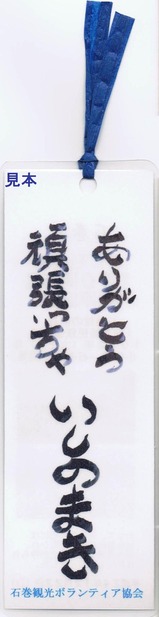 見本
ありがとう
頑張っちゃ
いしのまき
石巻観光ボランティア協会